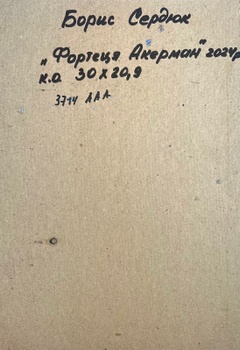 Борис Сердюк
„Фортеця Акерман" 2024р
к.о 30х20,9
3714 ААА